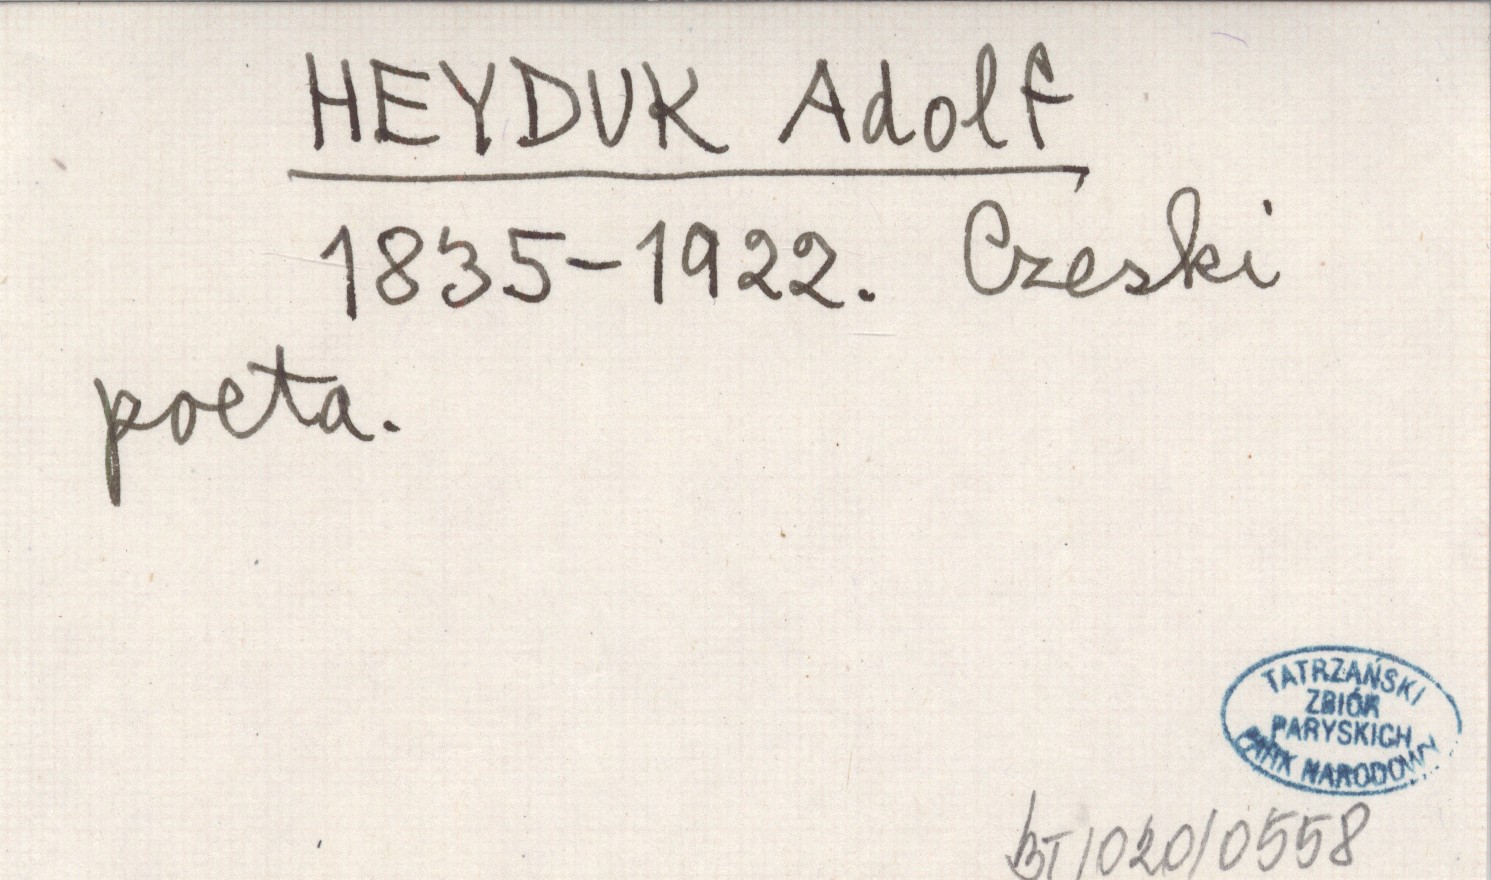 HEYDUK Adolf
1835-1922. Czeski
poeta.
TATRZAŃSKI
ZBIÓR
PARYSKICH
PARK NARODOWY
BT/020/0558